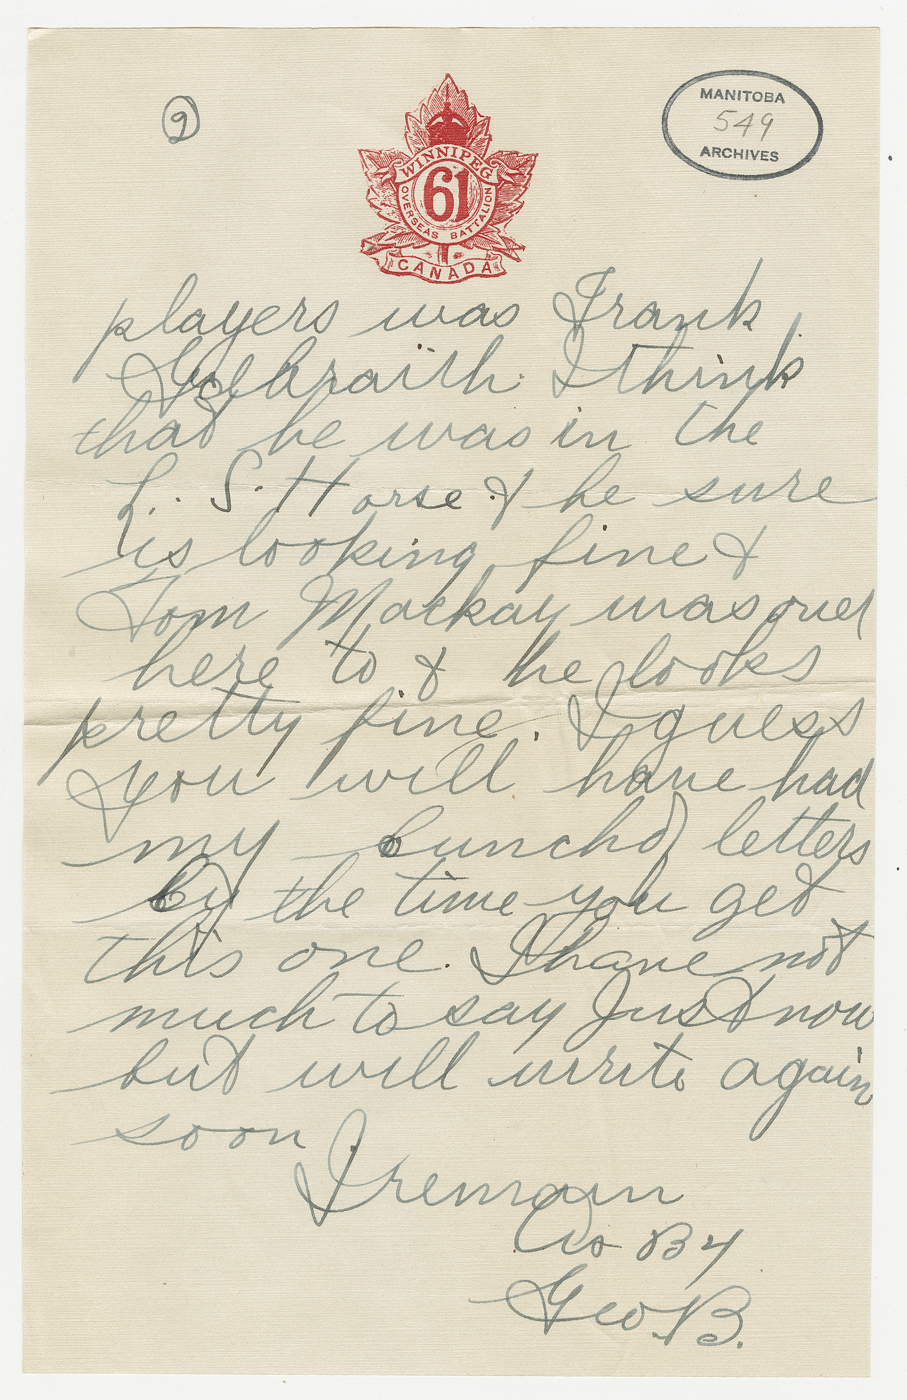 9
MANITOBA
549
ARCHIVES
WINNIPEG
61
OVERSEAS BATTALION
CANADA
players was Frank
Galbraith. I think
that he was in the
L. S. Horse & he sure
is looking fine &
Tom Mackay was over
here to & he looks
pretty fine. I guess
you will have had
my bunch of letters
by the time you get
this one. I have not
much to say Just now
but will write again
soon
I remain
As B4
Geo. B.